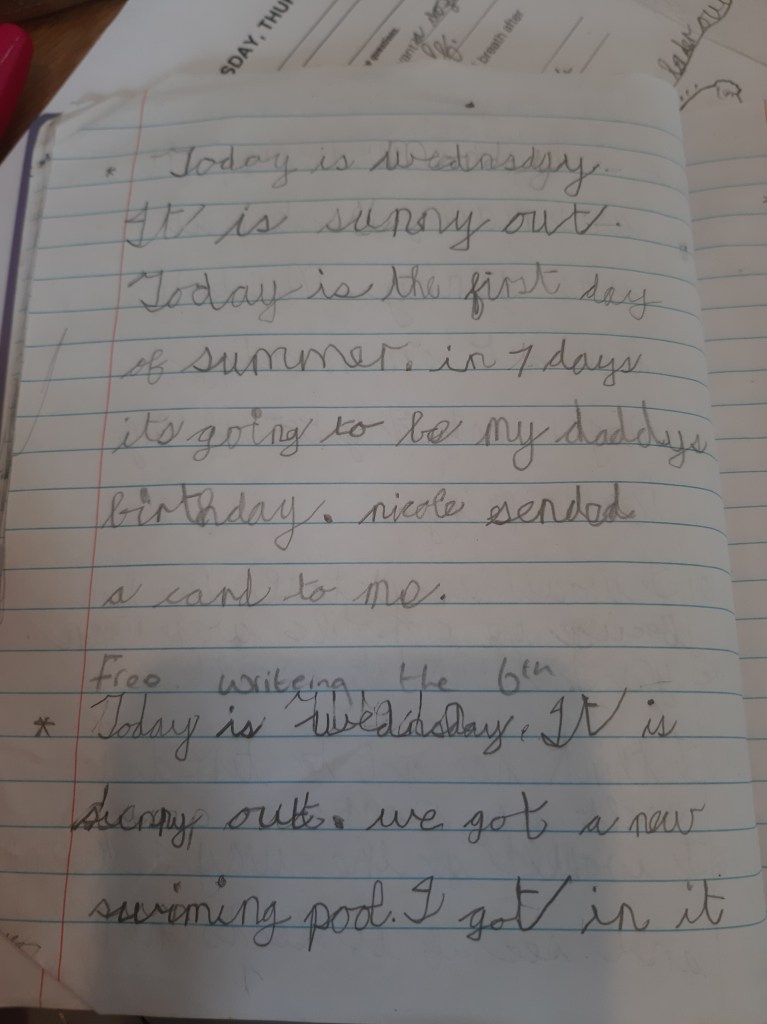 SDAY, THU
breath after
* Today is Wednesday.
It is sunny out.
Today is the first day
of summer. in 7 days
its going to be my daddys
birthday. nicole sended
a card to me.
Free writeing the 6th
* Today is Wednesday. It is
sunny out. we got a new
swiming pool. I got in it